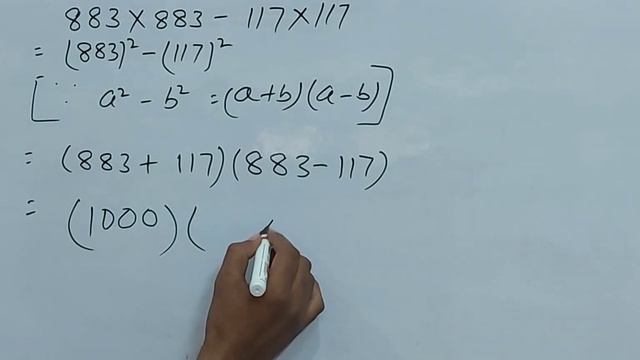 883×883 - 117×117
= (883)² - (117)²
[∵ a² - b² = (a+b)(a-b)]
= (883 + 117)(883 - 117)
= (1000)(